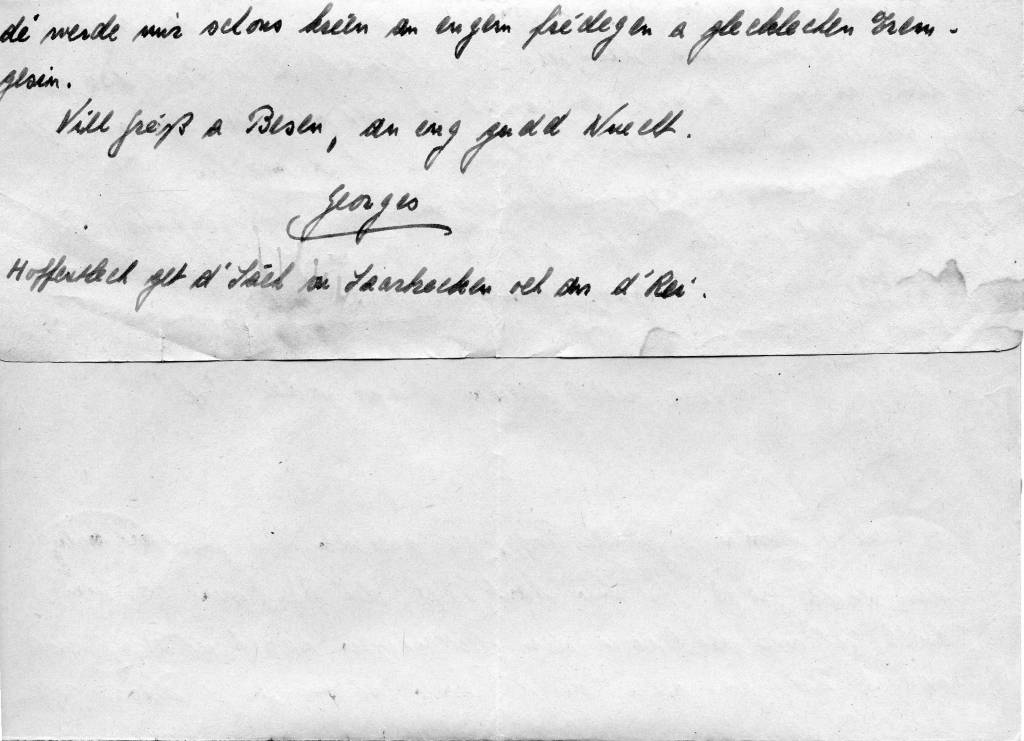 dé werde mir schons kréien an engem friédegen a glecklechen Erem-
gesin.
Vill Gréiß a Besen, an eng gudd Nuecht.
Georges
Hoffentlech get d'Säch an Saarbrecken och an d'Rei.